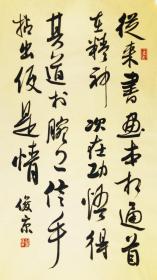 從来書画本相通首
在精神次在功悟得
其道於腕人信手
拈出便是情
俊京